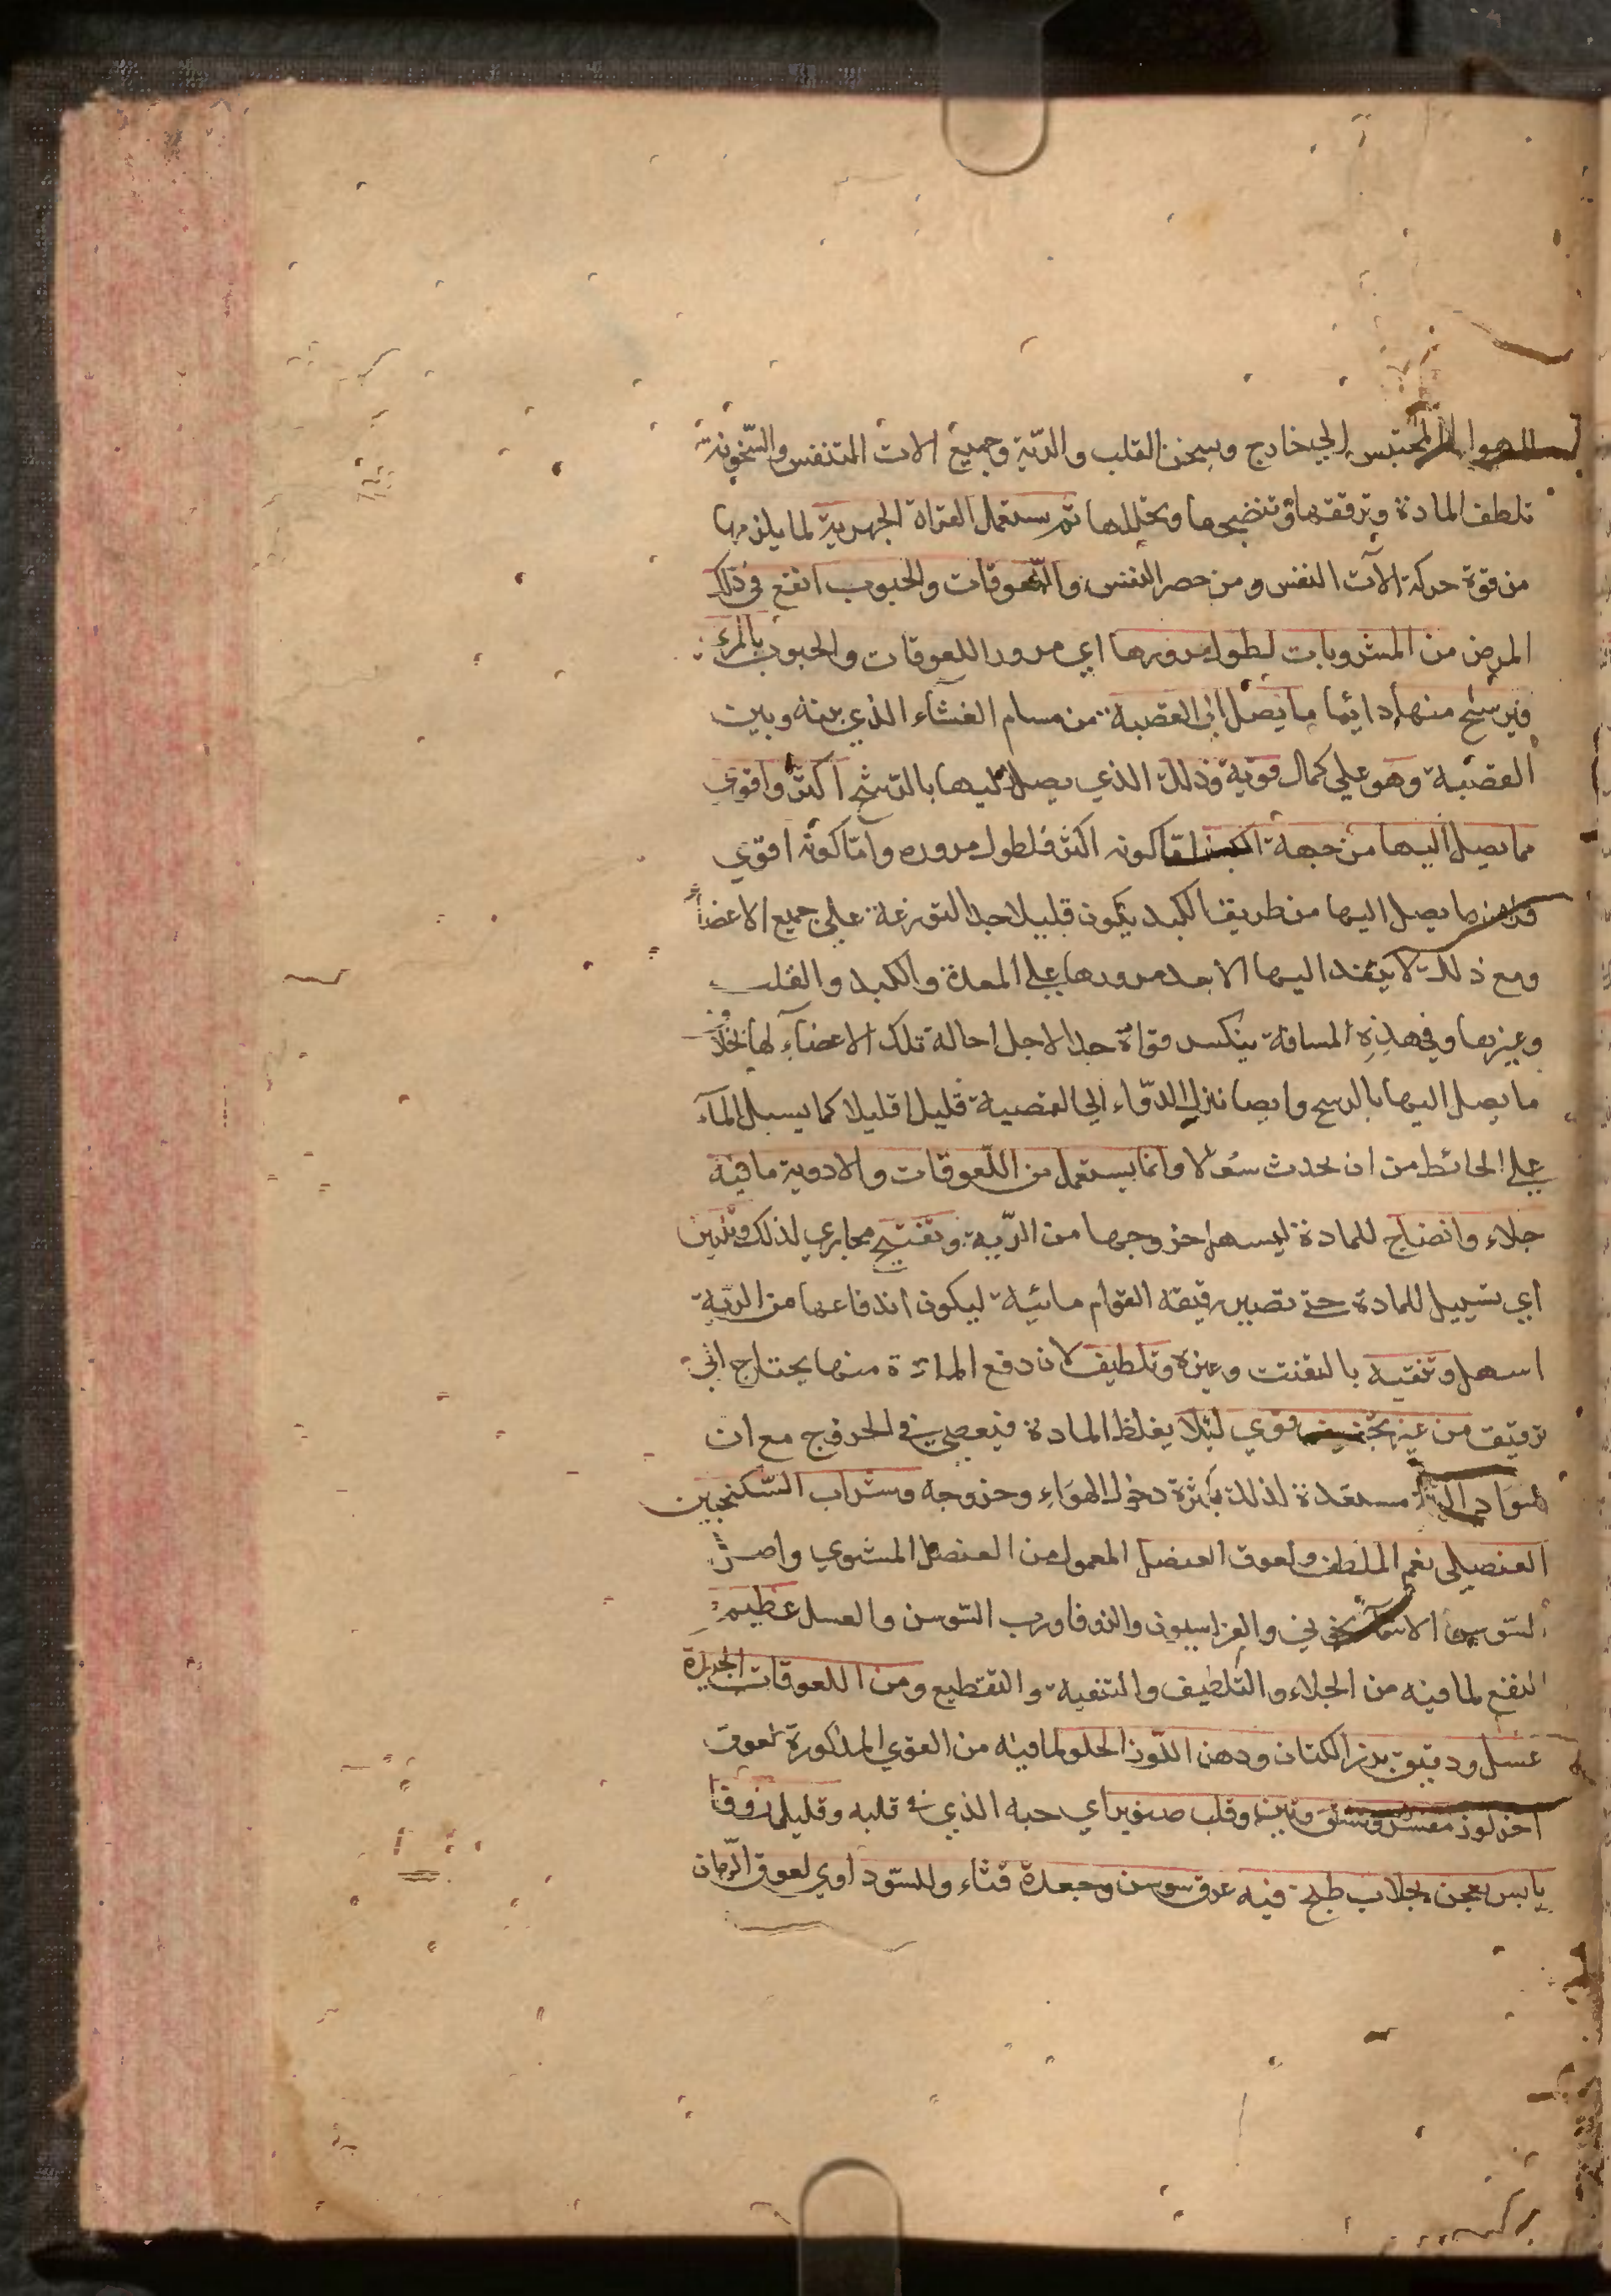 الهواء المحتبس الي خارج ويسخن القلب والرّية وجميع الات المتنفس والسّخونة
تلطف المادة وترققها وتنضجها وتحللها ثم يستعمل القراة الجهرية لما يلزمها
من قوة حركة الآت النفس ومن حصر النفس واللّعوقات والحبوب انفع في ذلك
المرض من المشروبات لطول مرورها اي مرور اللعوقات والحبوب بالمرء
فيرشح منها دايما ما يصل الى القصبة من مسام الغشاء الذي بينه وبين
القصبة وهو علي كمال قوته وذلك الذي يصل اليها بالترشح اكثر واقوي
مما يصل اليها من جهة الكبد اما كونه اكثر فلطول مروره وامّا كونه اقوي
فلان ما يصل اليها من طريق الكبد يكون قليلا جدا لتوزعه علي جميع الاعضاء
ومع ذلك لا ينفذ اليها الا بعد مرورها علي المعدة والكبد والقلب
وغيرها وفي هذه المسافة ينكسر قواة جدا لاجل احالة تلك الاعضاء لها بخلاف
ما يصل اليها بالرسح وايضا نزل الدّواء الي القصبة قليلا قليلا كما يسيل المآء
علي الحائط من ان يحدث سُعالا وانما يستعمل من اللّعوقات والادوية ما فيه
جلاء وانضاج للمادة ليسهل خروجها من الرّية وتفتيح مجاري لذلك وتليين
اي تسييل للمادة حتى تصير رقيقة القوام مائية ليكون اندفاعها من الرّية
اسهل وتنقيه بالتفتت وغيره وتلطيف لان دفع المادة منها يحتاج الى
ترقيق من غير تجفيف قوي لئلا يغلظ المادة فيعصي في الخروج مع ان
مواد الرية مستعدة لذلك بكثرة دخول الهواء وخروجه وشراب السّكنجبين
العنصيلي نعم الملطف ولعوق العنصل المعمول من العنصل المشوي واصل
السّوسن الاسمآنجوني والفراسيون والزوفا ورب السّوسن والعسل عظيم
النفع لما فيه من الجلاء والتلطيف والتنقية والتقطيع ومن اللعوقات الجيدة
عسل ودقيق بزر الكتان ودهن اللّوز الحلو لما فيه من القوي المذكورة لعوق
اخر لوز مقشر وفستق وتين وقلب صنوبر اي حبه الذي في قلبه وقليل زوفا
يابس يعجن بجلاب طبخ فيه عرق سوسن وجعدة قثاء وللسّوداوي لعوق الرّمان